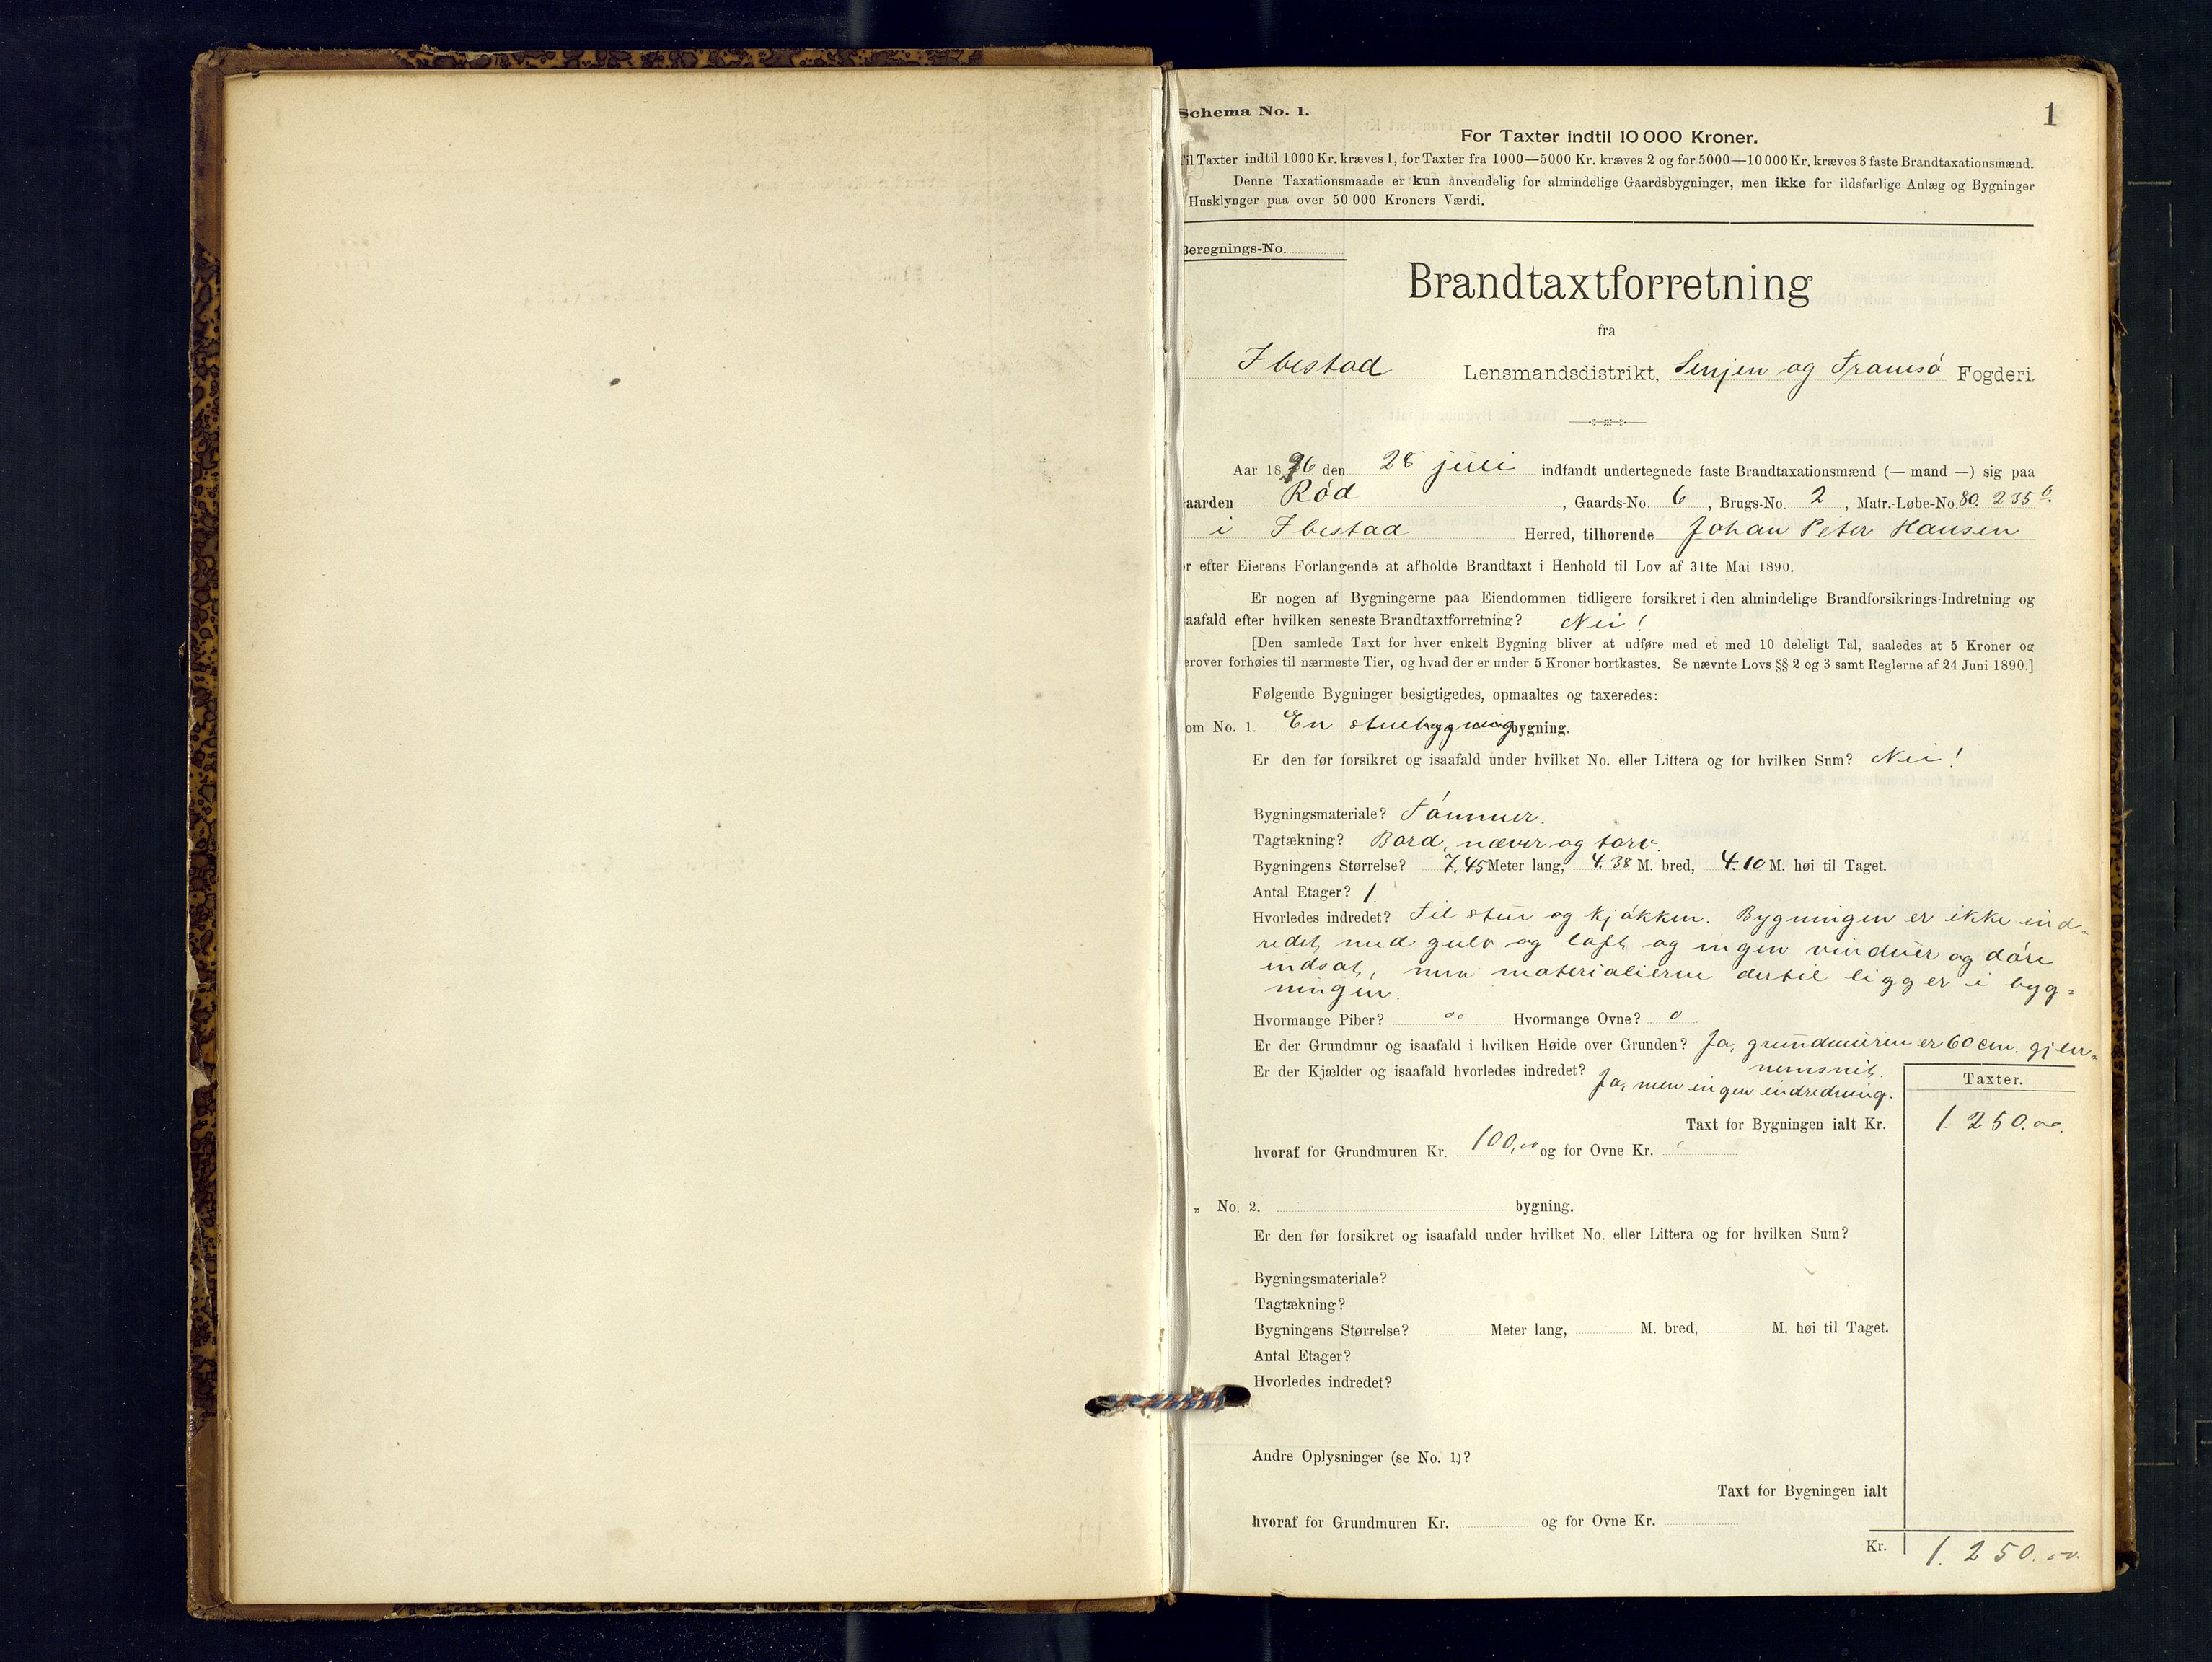 Schema No. 1.
1
For Taxter indtil 10 000 Kroner.
Til Taxter indtil 1000 Kr. kræves 1, for Taxter fra 1000—5000 Kr. kræves 2 og for 5000—10 000 Kr. kræves 3 faste Brandtaxationsmænd.
Denne Taxationsmaade er kun anvendelig for almindelige Gaardsbygninger, men ikke for ildsfarlige Anlæg og Bygninger
Husklynger paa over 50 000 Kroners Værdi.
Beregnings-No.
Brandtaxtforretning
fra
Ibestad Lensmandsdistrikt, Senjen og Tromsö Fogderi.
Aar 1896 den 28 juli indfandt undertegnede faste Brandtaxationsmænd (— mand —) sig paa
Gaarden Röd, Gaards-No. 6, Brugs-No. 2, Matr.-Løbe-No. 80. 235 b.
i Ibestad Herred, tilhørende Johan Peter Hansen
or efter Eierens Forlangende at afholde Brandtaxt i Henhold til Lov af 31te Mai 1890.
Er nogen af Bygningerne paa Eiendommen tidligere forsikret i den almindelige Brandforsikrings-Indretning og
saafald efter hvilken seneste Brandtaxtforretning? Nei!
[Den samlede Taxt for hver enkelt Bygning bliver at udføre med et med 10 deleligt Tal, saaledes at 5 Kroner og
derover forhøies til nærmeste Tier, og hvad der er under 5 Kroner bortkastes. Se nævnte Lovs §§ 2 og 3 samt Reglerne af 24 Juni 1890.]
Følgende Bygninger besigtigedes, opmaaltes og taxeredes:
Som No. 1. En stuebygning bygning.
Er den før forsikret og isaafald under hvilket No. eller Littera og for hvilken Sum? Nei!
Bygningsmateriale? Tömmer.
Tagtækning? Bord, næver og torv.
Bygningens Størrelse? 7.45 Meter lang, 4.38 M. bred, 4.10 M. høi til Taget.
Antal Etager? 1.
Hvorledes indredet? Til stue og kjökken. Bygningen er ikke ind-
redet med gulv og loft og ingen vinduer og döre
indsat, men materialierne dertil ligger i byg-
ningen.
Hvormange Piber? 0 Hvormange Ovne? 0
Er der Grundmur og isaafald i hvilken Høide over Grunden? Ja, grundmuren er 60 cm. gjen-
nemsnit.
Er der Kjælder og isaafald hvorledes indredet? Ja, men ingen indredning.
Taxter.
Taxt for Bygningen ialt Kr. 1.250.00.
hvoraf for Grundmuren Kr. 100,00 og for Ovne Kr.
„ No. 2. bygning.
Er den før forsikret og isaafald under hvilket No. eller Littera og for hvilken Sum?
Bygningsmateriale?
Tagtækning?
Bygningens Størrelse? Meter lang, M. bred, M. høi til Taget.
Antal Etager?
Hvorledes indredet?
Andre Oplysninger (se No. 1.)?
Taxt for Bygningen ialt
hvoraf for Grundmuren Kr. og for Ovne Kr.
Kr. 1.250.00.